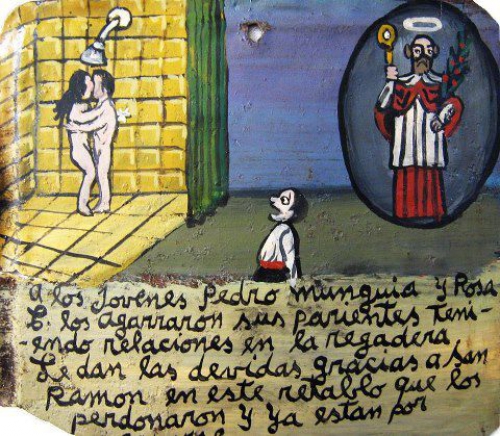 a los Jovenes Pedro munguia y Rosa
E. los agarraron sus parientes teni-
-endo relaciones en la regadera
Le dan las devidas gracias a San
Ramon en este retablo que los
perdonaron y ya estan por